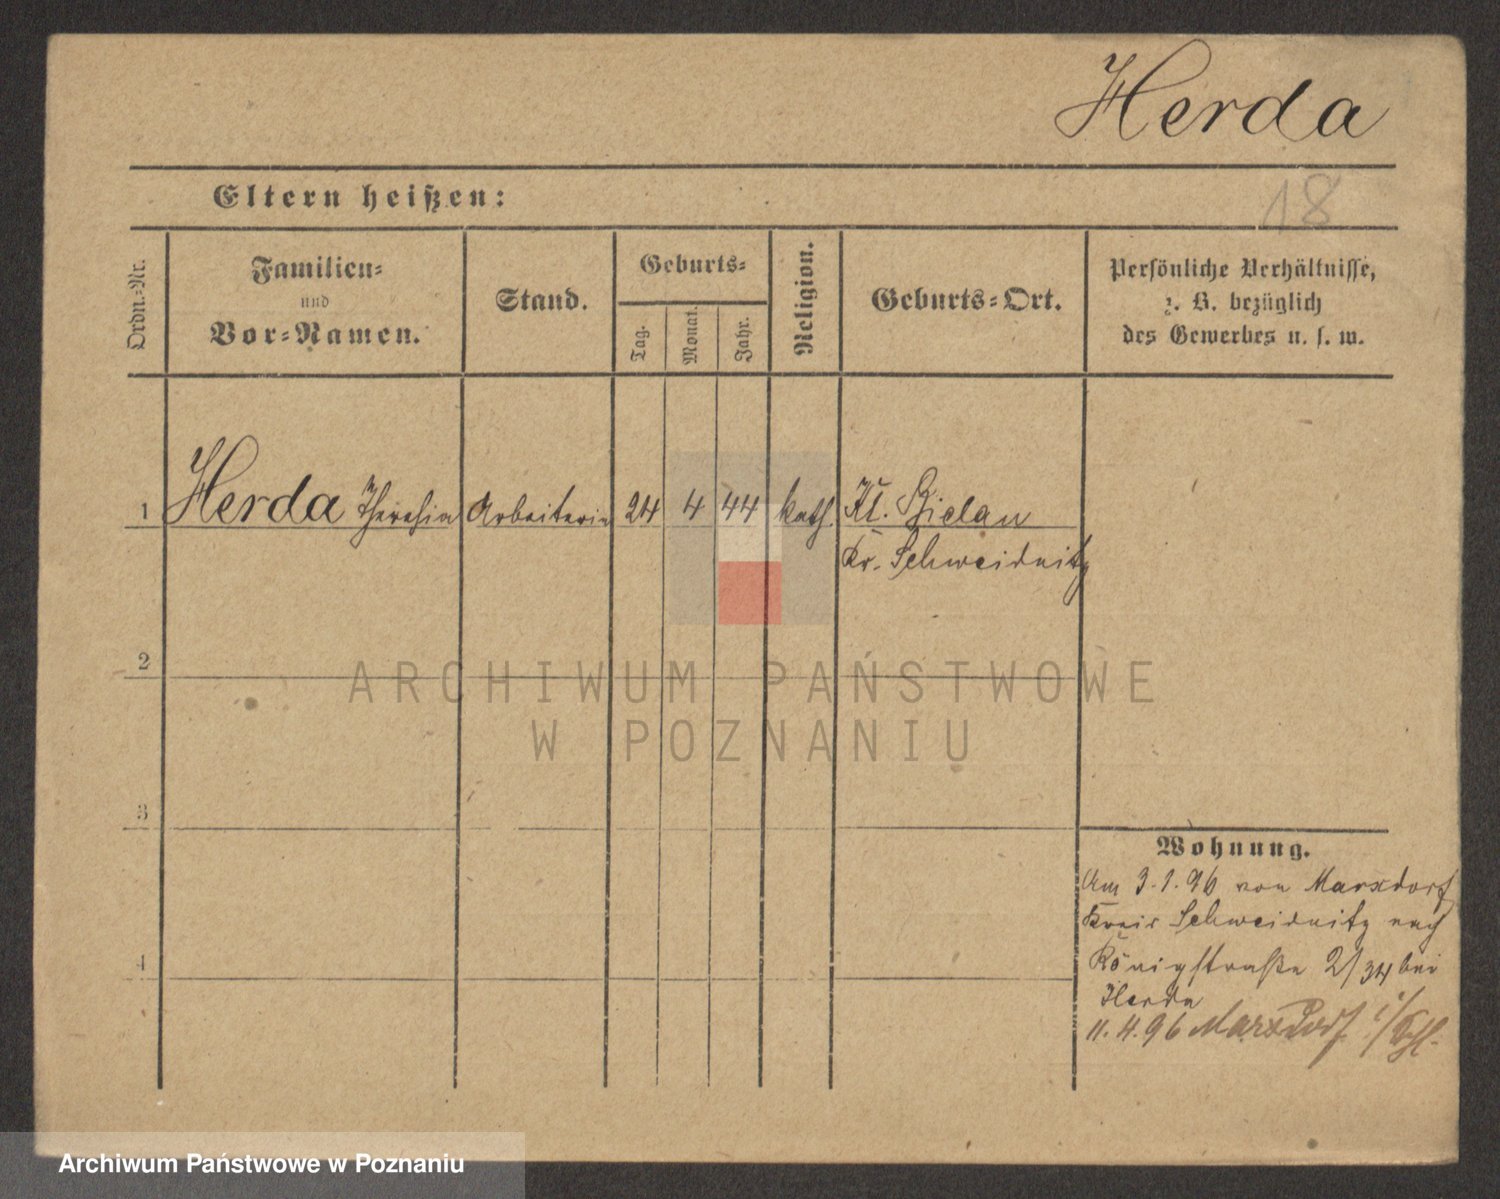 Herda
Eltern heißen:
18
Ordn.-Nr.
Familien-
und
Vor-Namen.
Stand.
Geburts-
Tag.
Monat.
Jahr.
Religion.
Geburts-Ort.
Persönliche Verhältnisse,
z. B. bezüglich
des Gewerbes u. s. w.
1 Herda Theresia Arbeiterin 24 4 44 kath. Kl. Bielau
Kr. Schweidnitz
2
ARCHIWUM PAŃSTWOWE
W POZNANIU
3
Wohnung.
Am 3.1.96 von Marxdorf
Kreis Schweidnitz nach
4
Königstraße 2/34 bei
Herda
11.4.96 Marxdorf i/Schl.
Archiwum Państwowe w Poznaniu